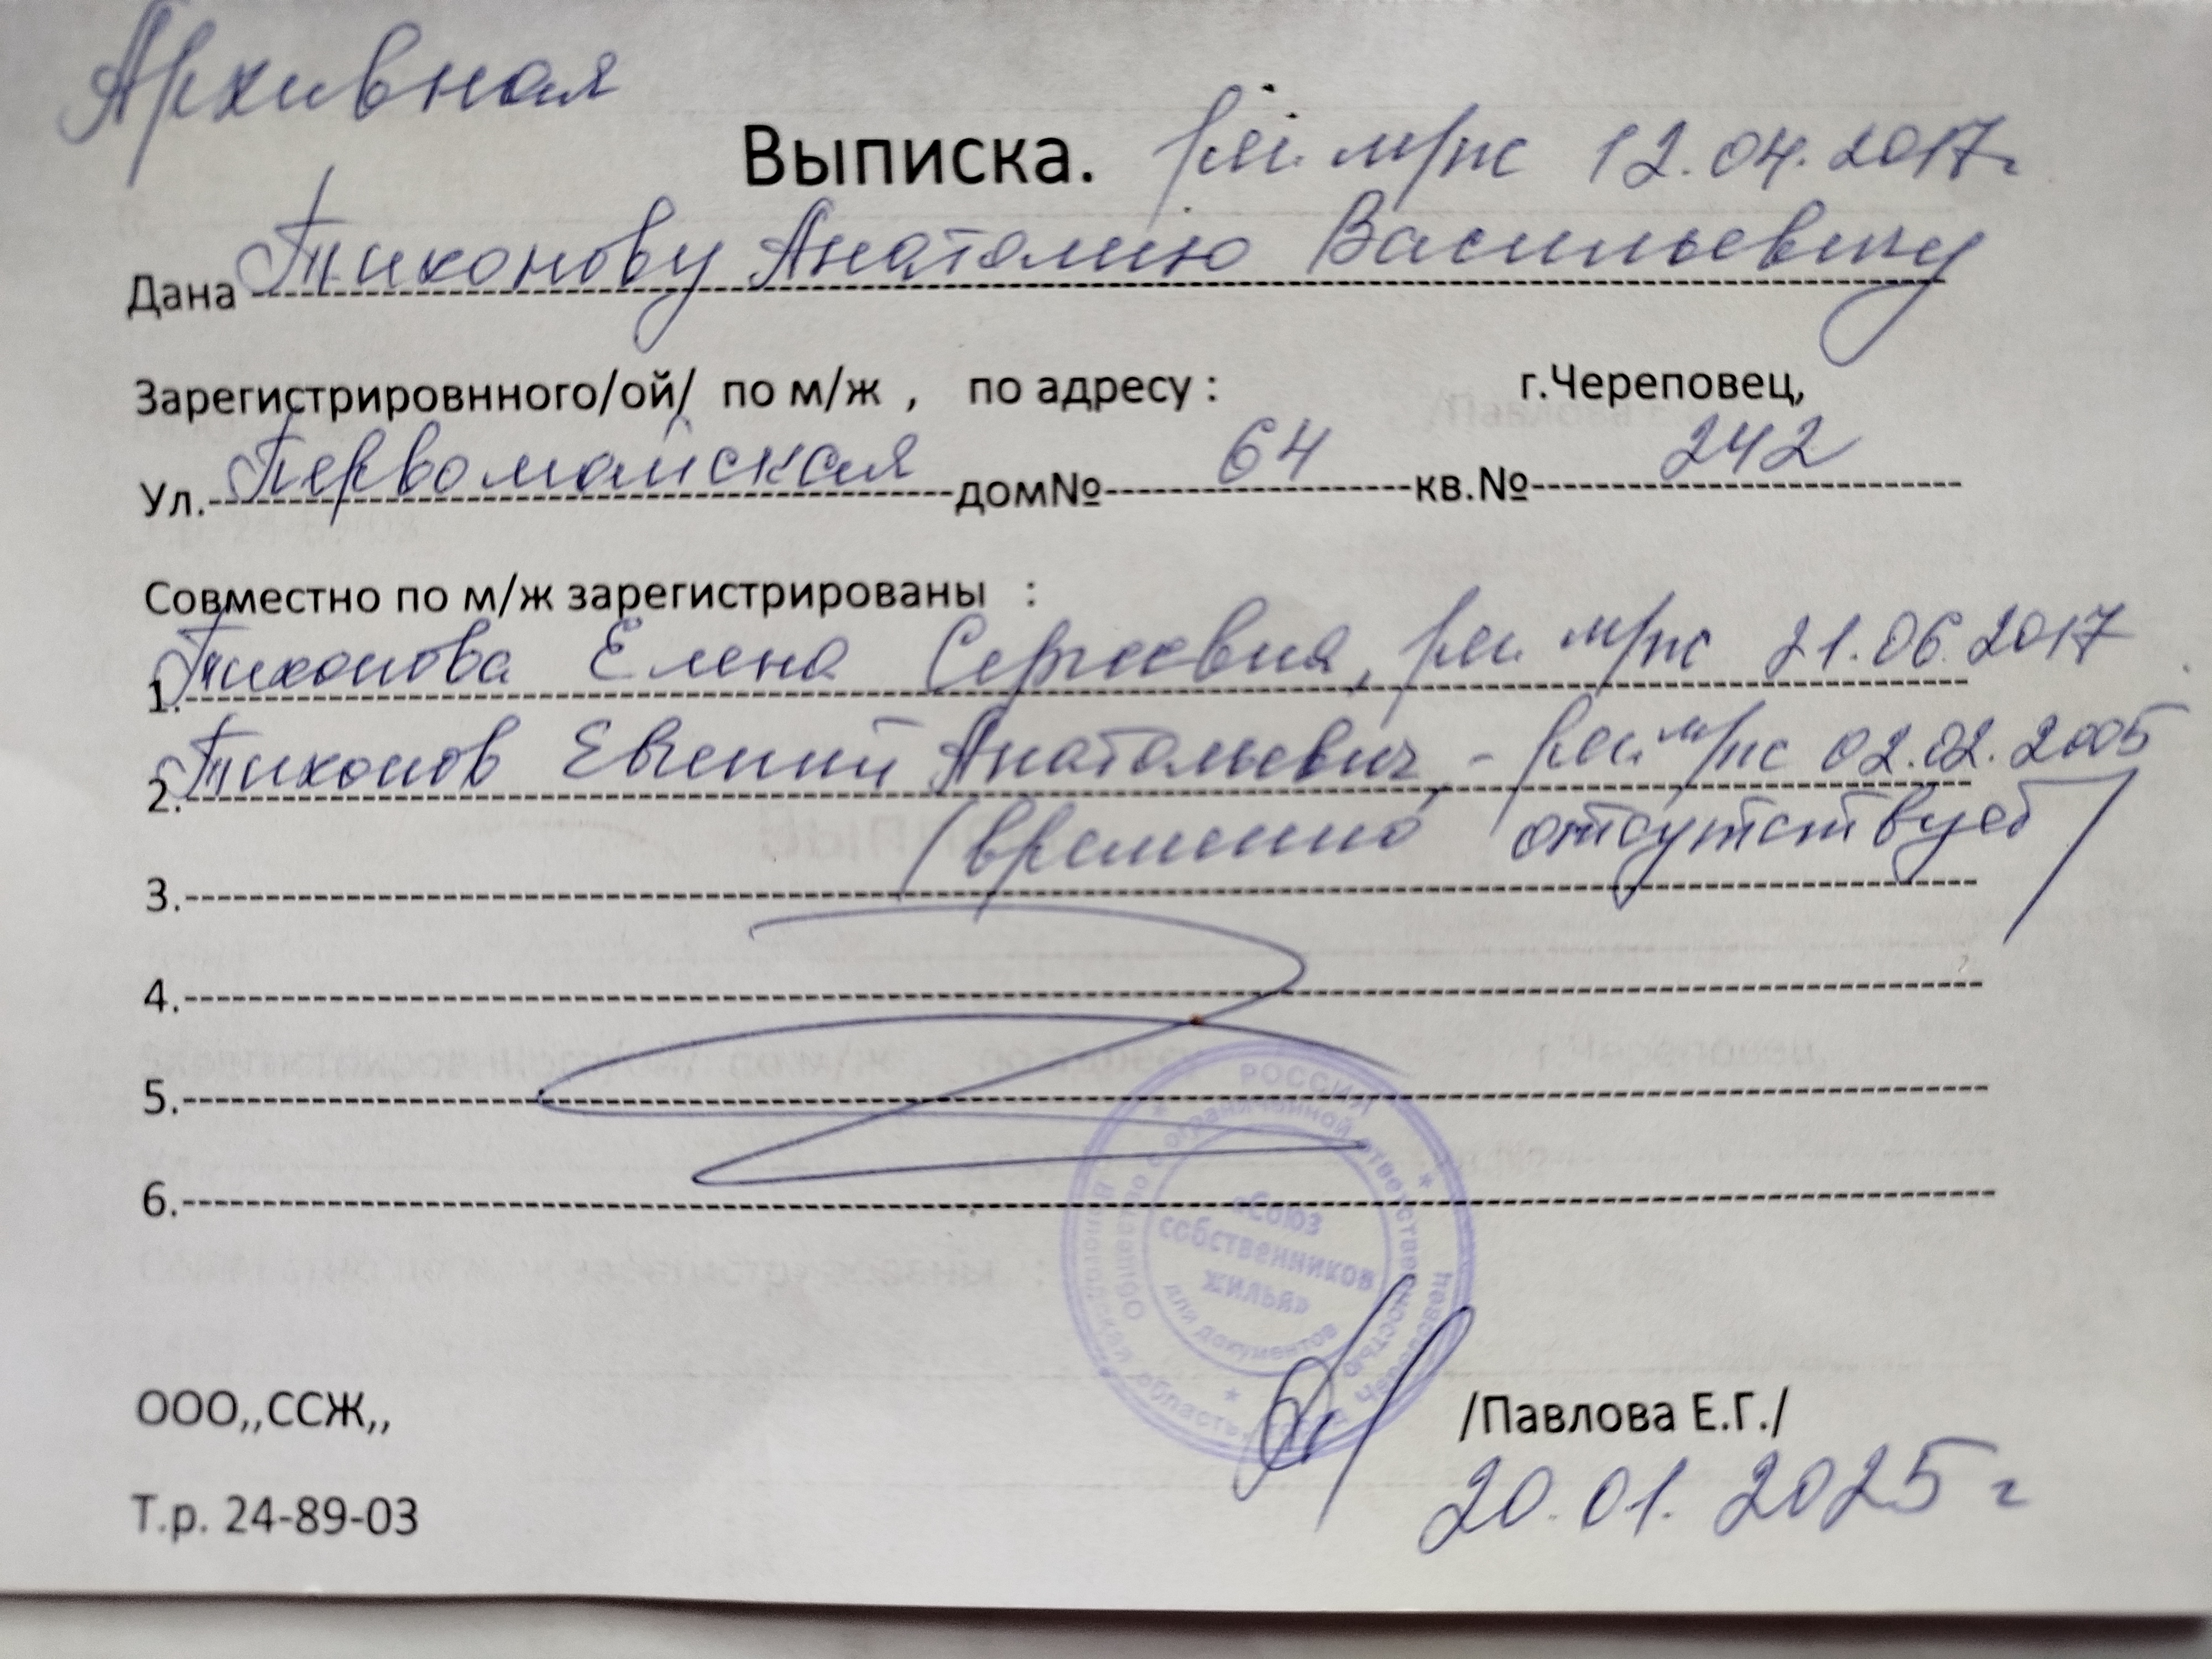 Архивная
Выписка. рег. м/ж 12.04.2017г
Дана Тихонову Анатолию Васильевичу
Зарегистрировнного/ой/ по м/ж , по адресу : г.Череповец,
Ул. Первомайская дом№ 64 кв.№ 242
Совместно по м/ж зарегистрированы :
1. Тихонова Елена Сергеевна, рег. м/ж 21.06.2017
2. Тихонов Евгений Анатольевич, - рег. м/ж 02.02.2005
3. (временно отсутствует)
4.
5.
6.
РОССИЯ
Вологодская область, город Череповец
Общество с ограниченной ответственностью
«Союз
собственников
жилья»
для документов
ООО,,ССЖ,, /Павлова Е.Г./
20.01.2025г
Т.р. 24-89-03